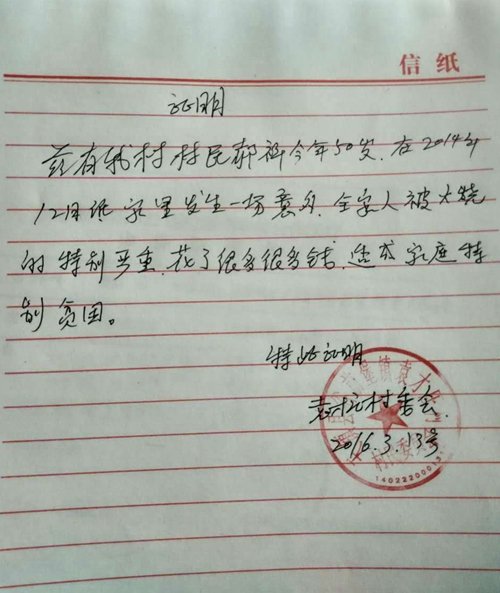 信纸
证明
兹有我村村民郝福今年50岁.在2014年
12月份家里发生一场意外.全家人被大烧
的特别严重.花了很多很多钱.造成家庭特
别贫困。
特此证明
村委会.
2016.3.13号
140222000